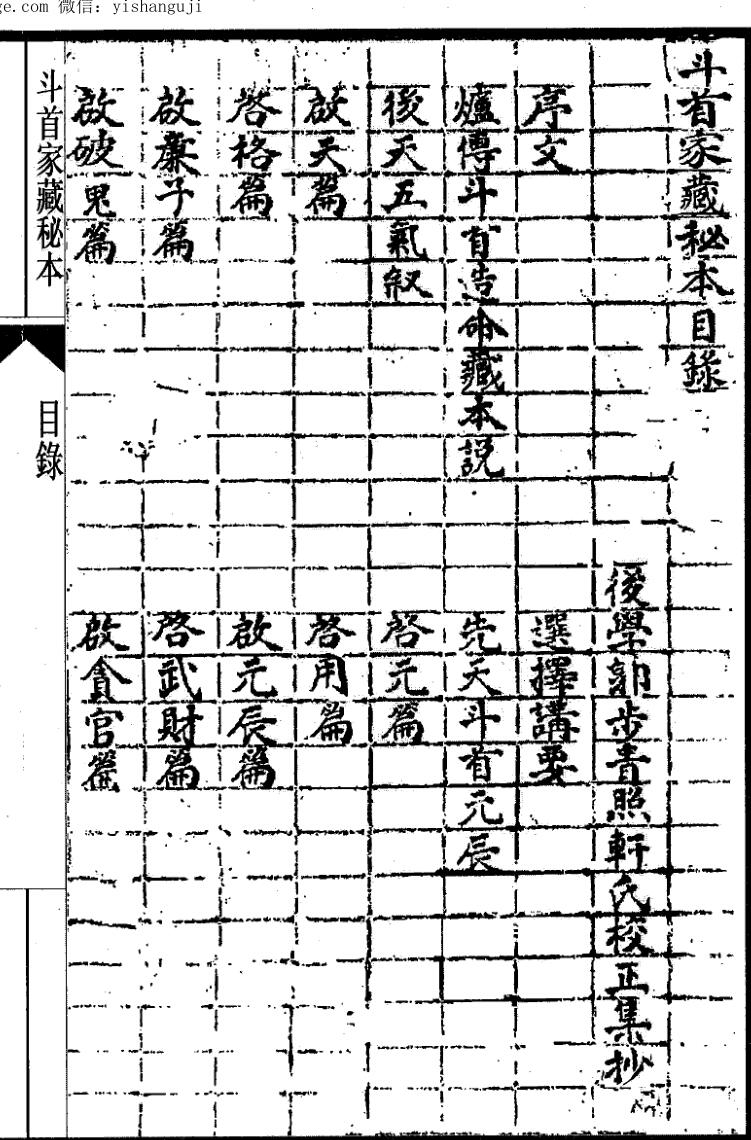 ge.com 微信：yishanguji
斗首家藏秘本目錄
後學郭步青照軒氏校正集抄
序文
選擇講要
爐傳斗首造命藏本説
先天斗首元辰
後天五氣叙
啓元篇
啟天篇
啓用篇
啓格篇
啟元辰篇
啟廉子篇
啓武財篇
啟破鬼篇
啟貪官篇
斗首家藏秘本
目錄